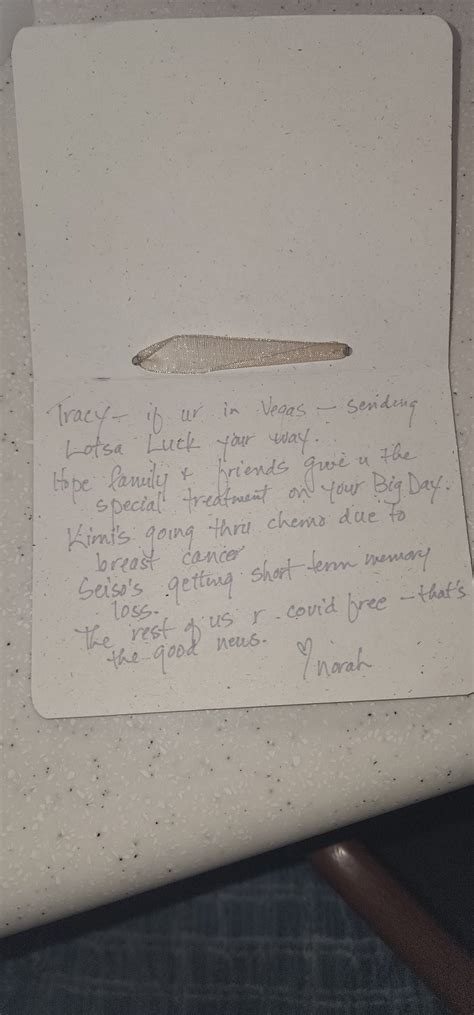 Tracy - if ur in Vegas - sending
Lotsa Luck your way.
Hope family & friends give u the
special treatment on your Big Day.
Kimi's going thru chemo due to
breast cancer
Seiso's getting short term memory
loss.
The rest of us r covid free - that's
the good news.
♡ norah